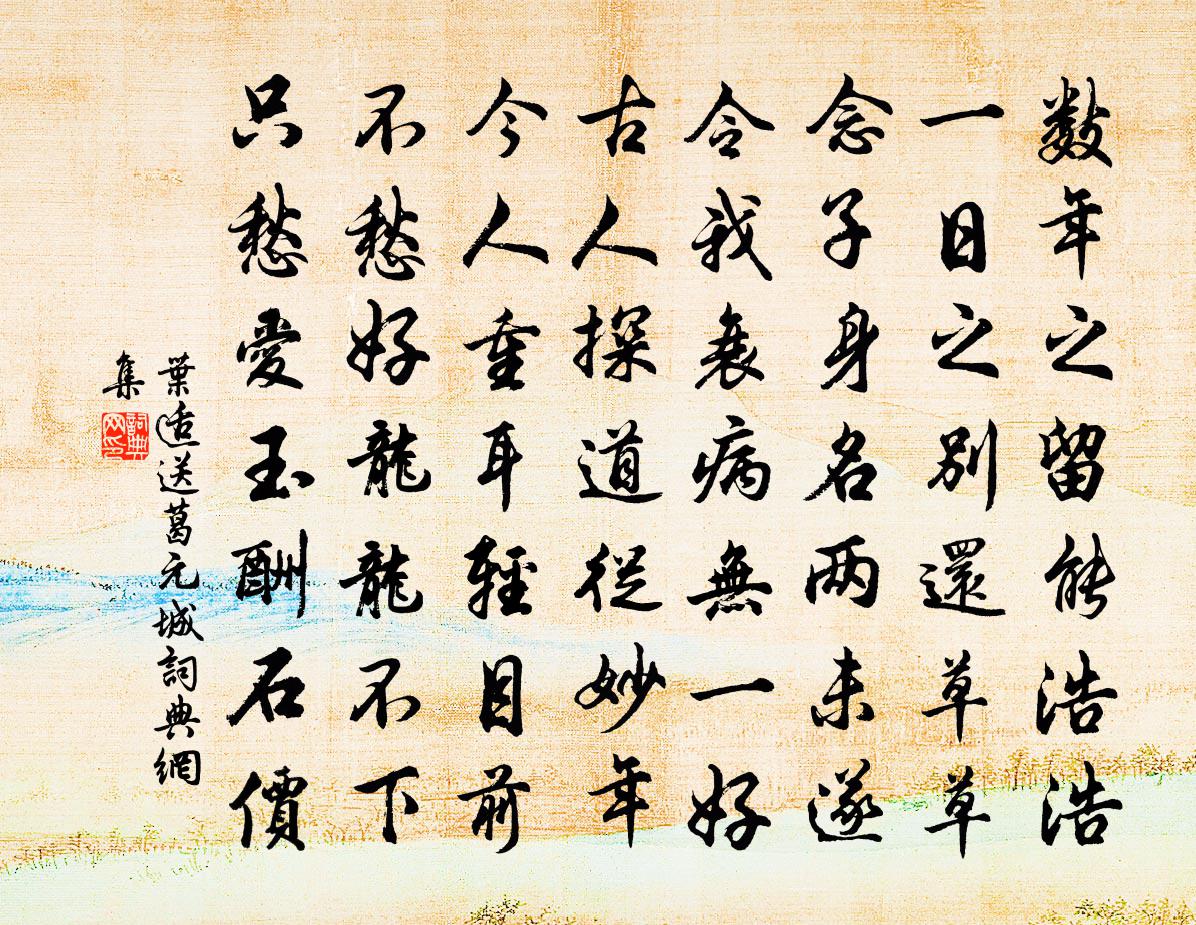 數年之留能浩浩
一日之別還草草
念子身名两未遂
令我衰病無一好
古人探道從妙年
今人重耳輕目前
不愁好龍龍不下
只愁愛玉酬石價
葉適送葛元城詞典網
集
詞典
网印